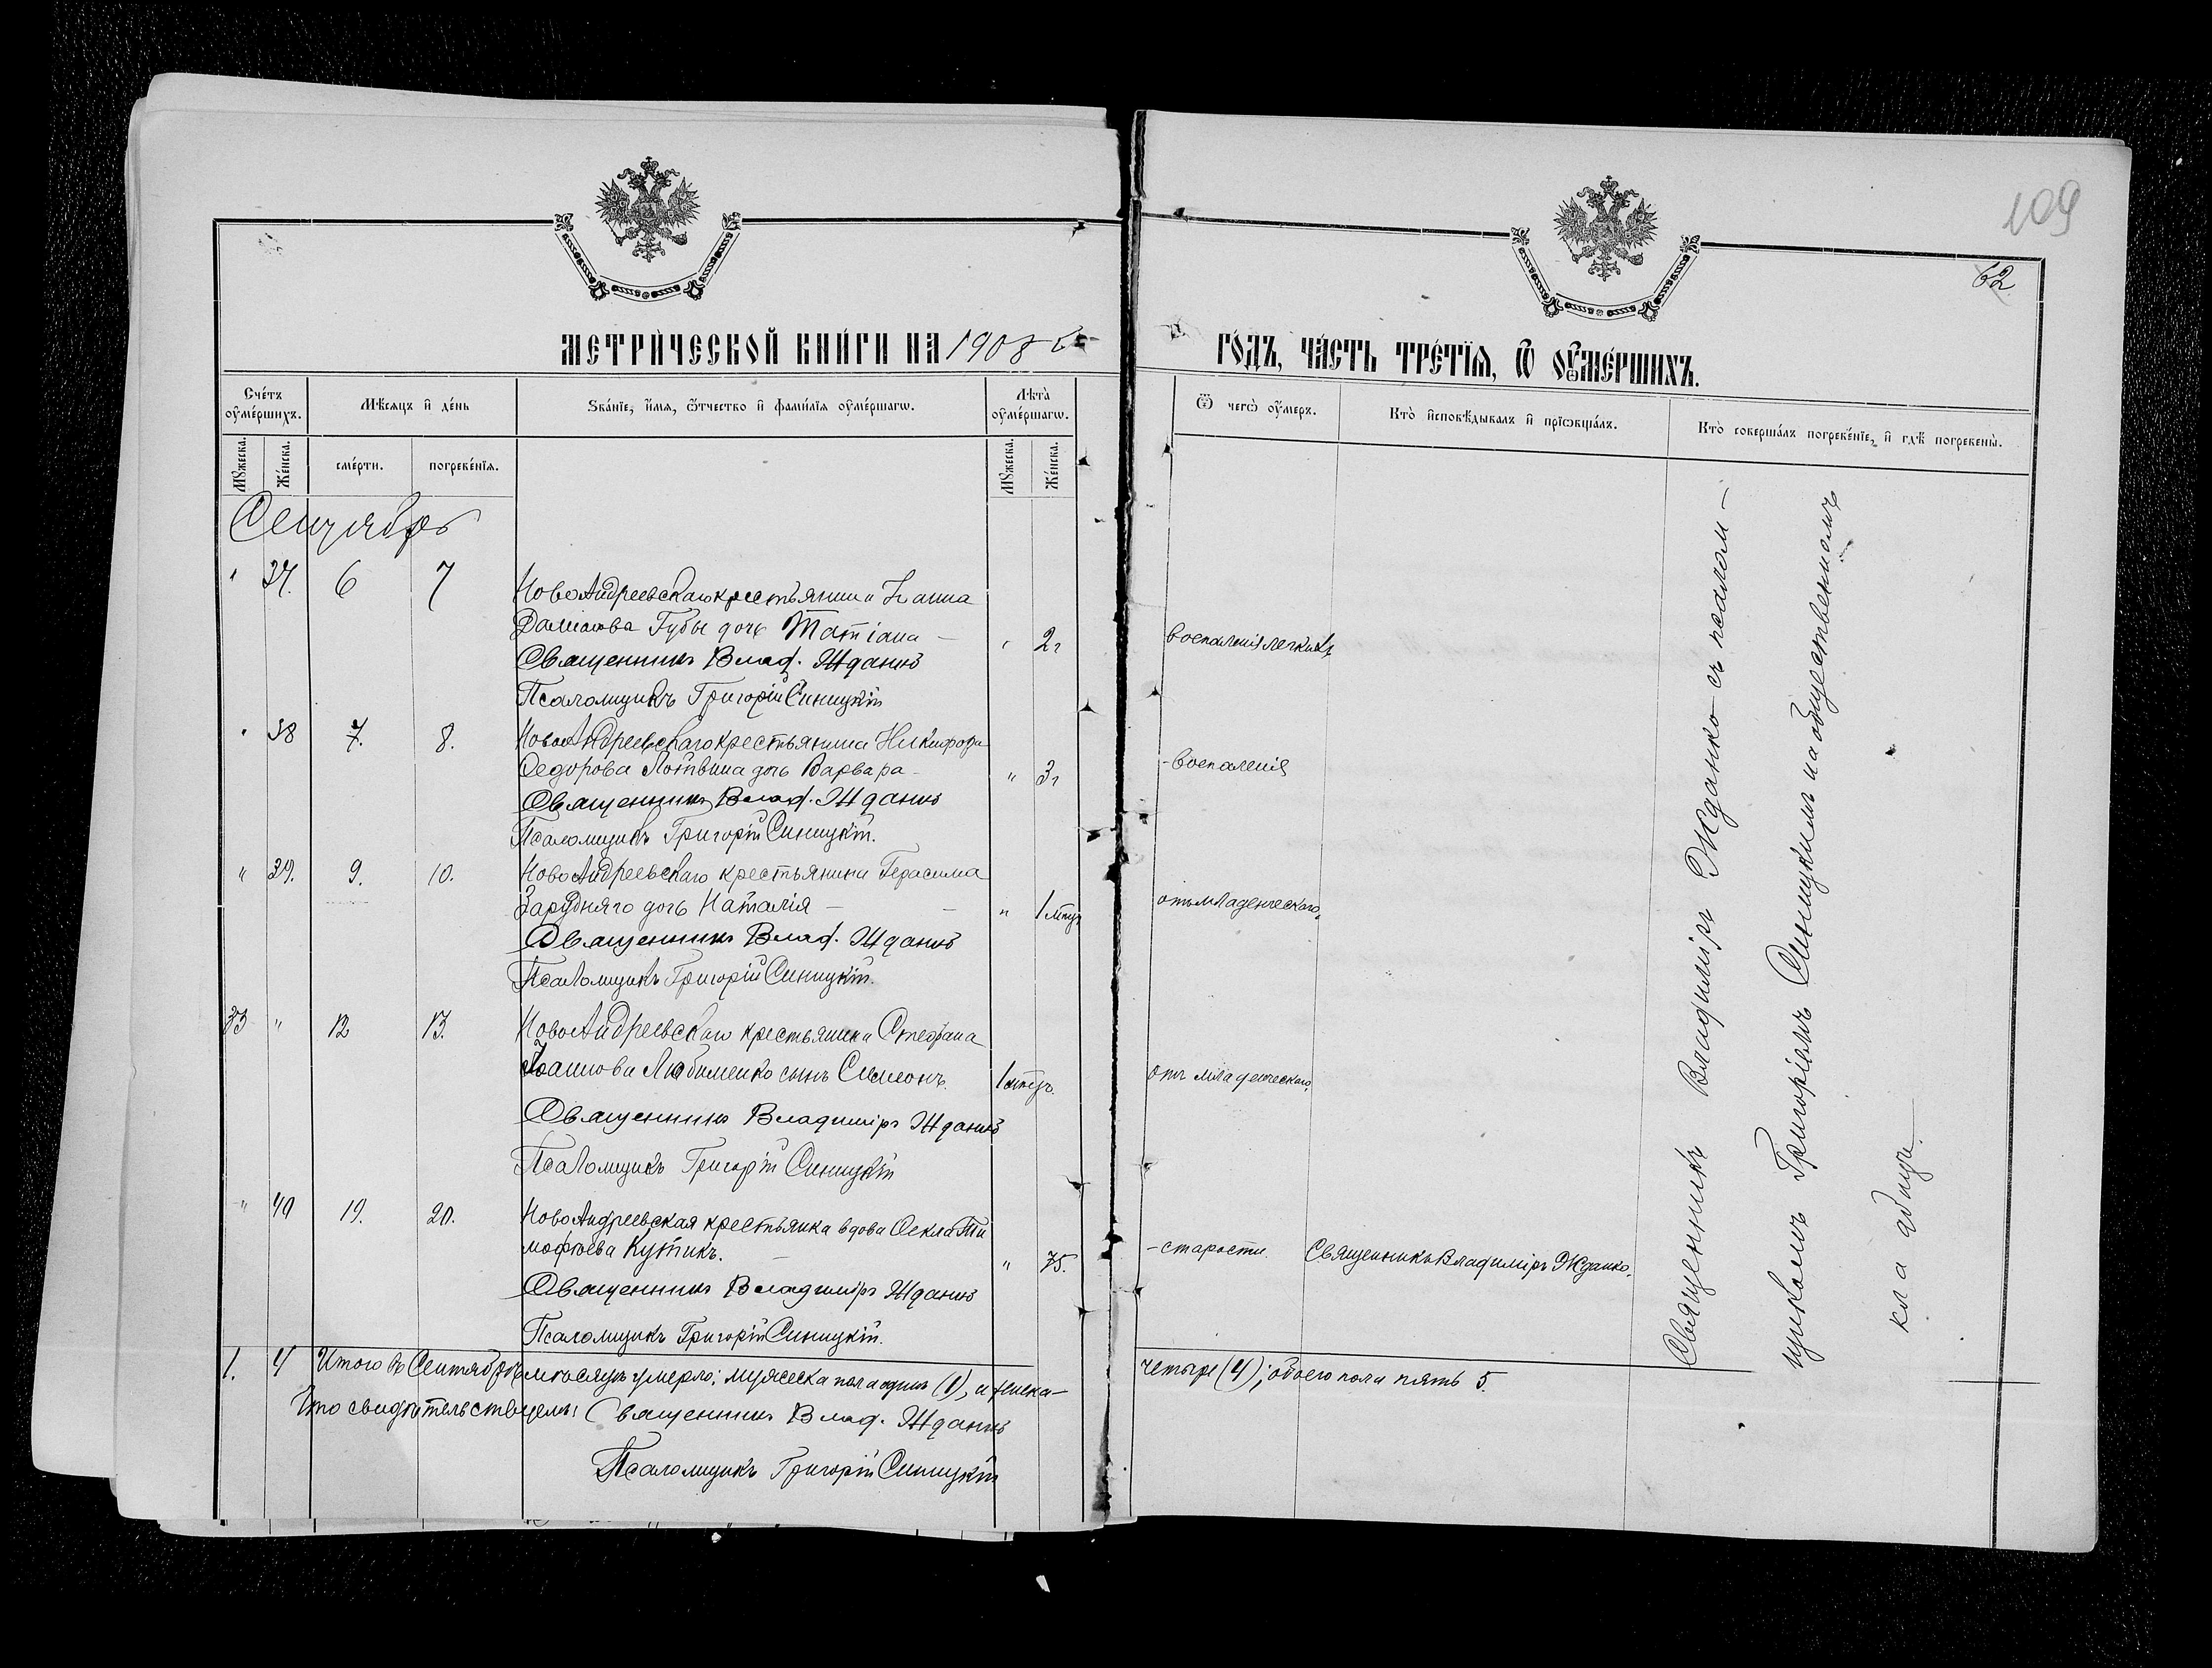 109
62
МЕТРИЧЕСКОЙ КНИГИ НА 1908 й
ГОДЪ, ЧАСТЬ ТРЕТІЯ, Ѿ ОУМЕРШИХЪ.
Счетъ оумершихъ.
Мѣсяцъ и день
Званіе, имя, ѿтчество и фамилія оумершагѡ.
Лѣта оумершагѡ.
Ѿ чегѡ оумеръ.
Кто исповѣдывалъ и пріѡбщалъ.
Кто совершалъ погребеніе, и гдѣ погребены.
Мꙋжеска.
Женска.
смерти.
погребенія.
Мꙋжеска.
Женска.
Сентябрь
" 37. 6 7 НовоАндреевскаго крестьянина Іоанна
Даміанова Губы дочь Татіана — " 2 г воспаленія легкихъ
Священникъ Влад. Жданко
Псаломщикъ Григорій Синицкій
" 38 7. 8. НовоАндреевскаго крестьянина Никифора
Ѳедорова Литвина дочь Варвара — " 3 г - воспаленія
Священникъ Влад. Жданко
Псаломщикъ Григорій Синицкій.
" 39. 9. 10. НовоАндреевскаго крестьянина Герасима
Заруднаго дочь Наталія — — " 1 мѣц. отъ младенческаго,
Священникъ Влад. Жданко
Псаломщикъ Григорій Синицкій.
33 " 12 13. НовоАндреевскаго крестьянина Стефана
Іоаннова Любименко сынъ Симеонъ. 1 мѣц. отъ младенческаго,
Священникъ Владиміръ Жданко
Псаломщикъ Григорій Синицкій
" 40 19. 20. НовоАндреевская крестьянка вдова Ѳекла Ти
мофѣева Кутикъ. — " 75. - старости. Священникъ Владиміръ Жданко.
Священникъ Владиміръ Жданко
Псаломщикъ Григорій Синицкій.
1. 4 Итого въ Сентябрѣ мѣсяцѣ умерло: мужеска пола одинъ (1), и женска — четыре (4); обоего пола пять 5.
Что свидѣтельствуемъ: Священникъ Влад. Жданко
Псаломщикъ Григорій Синицкій
Священникъ Владиміръ Жданко съ псалом-
щикомъ Григоріемъ Синицкимъ на общественномъ
кладбищѣ. —